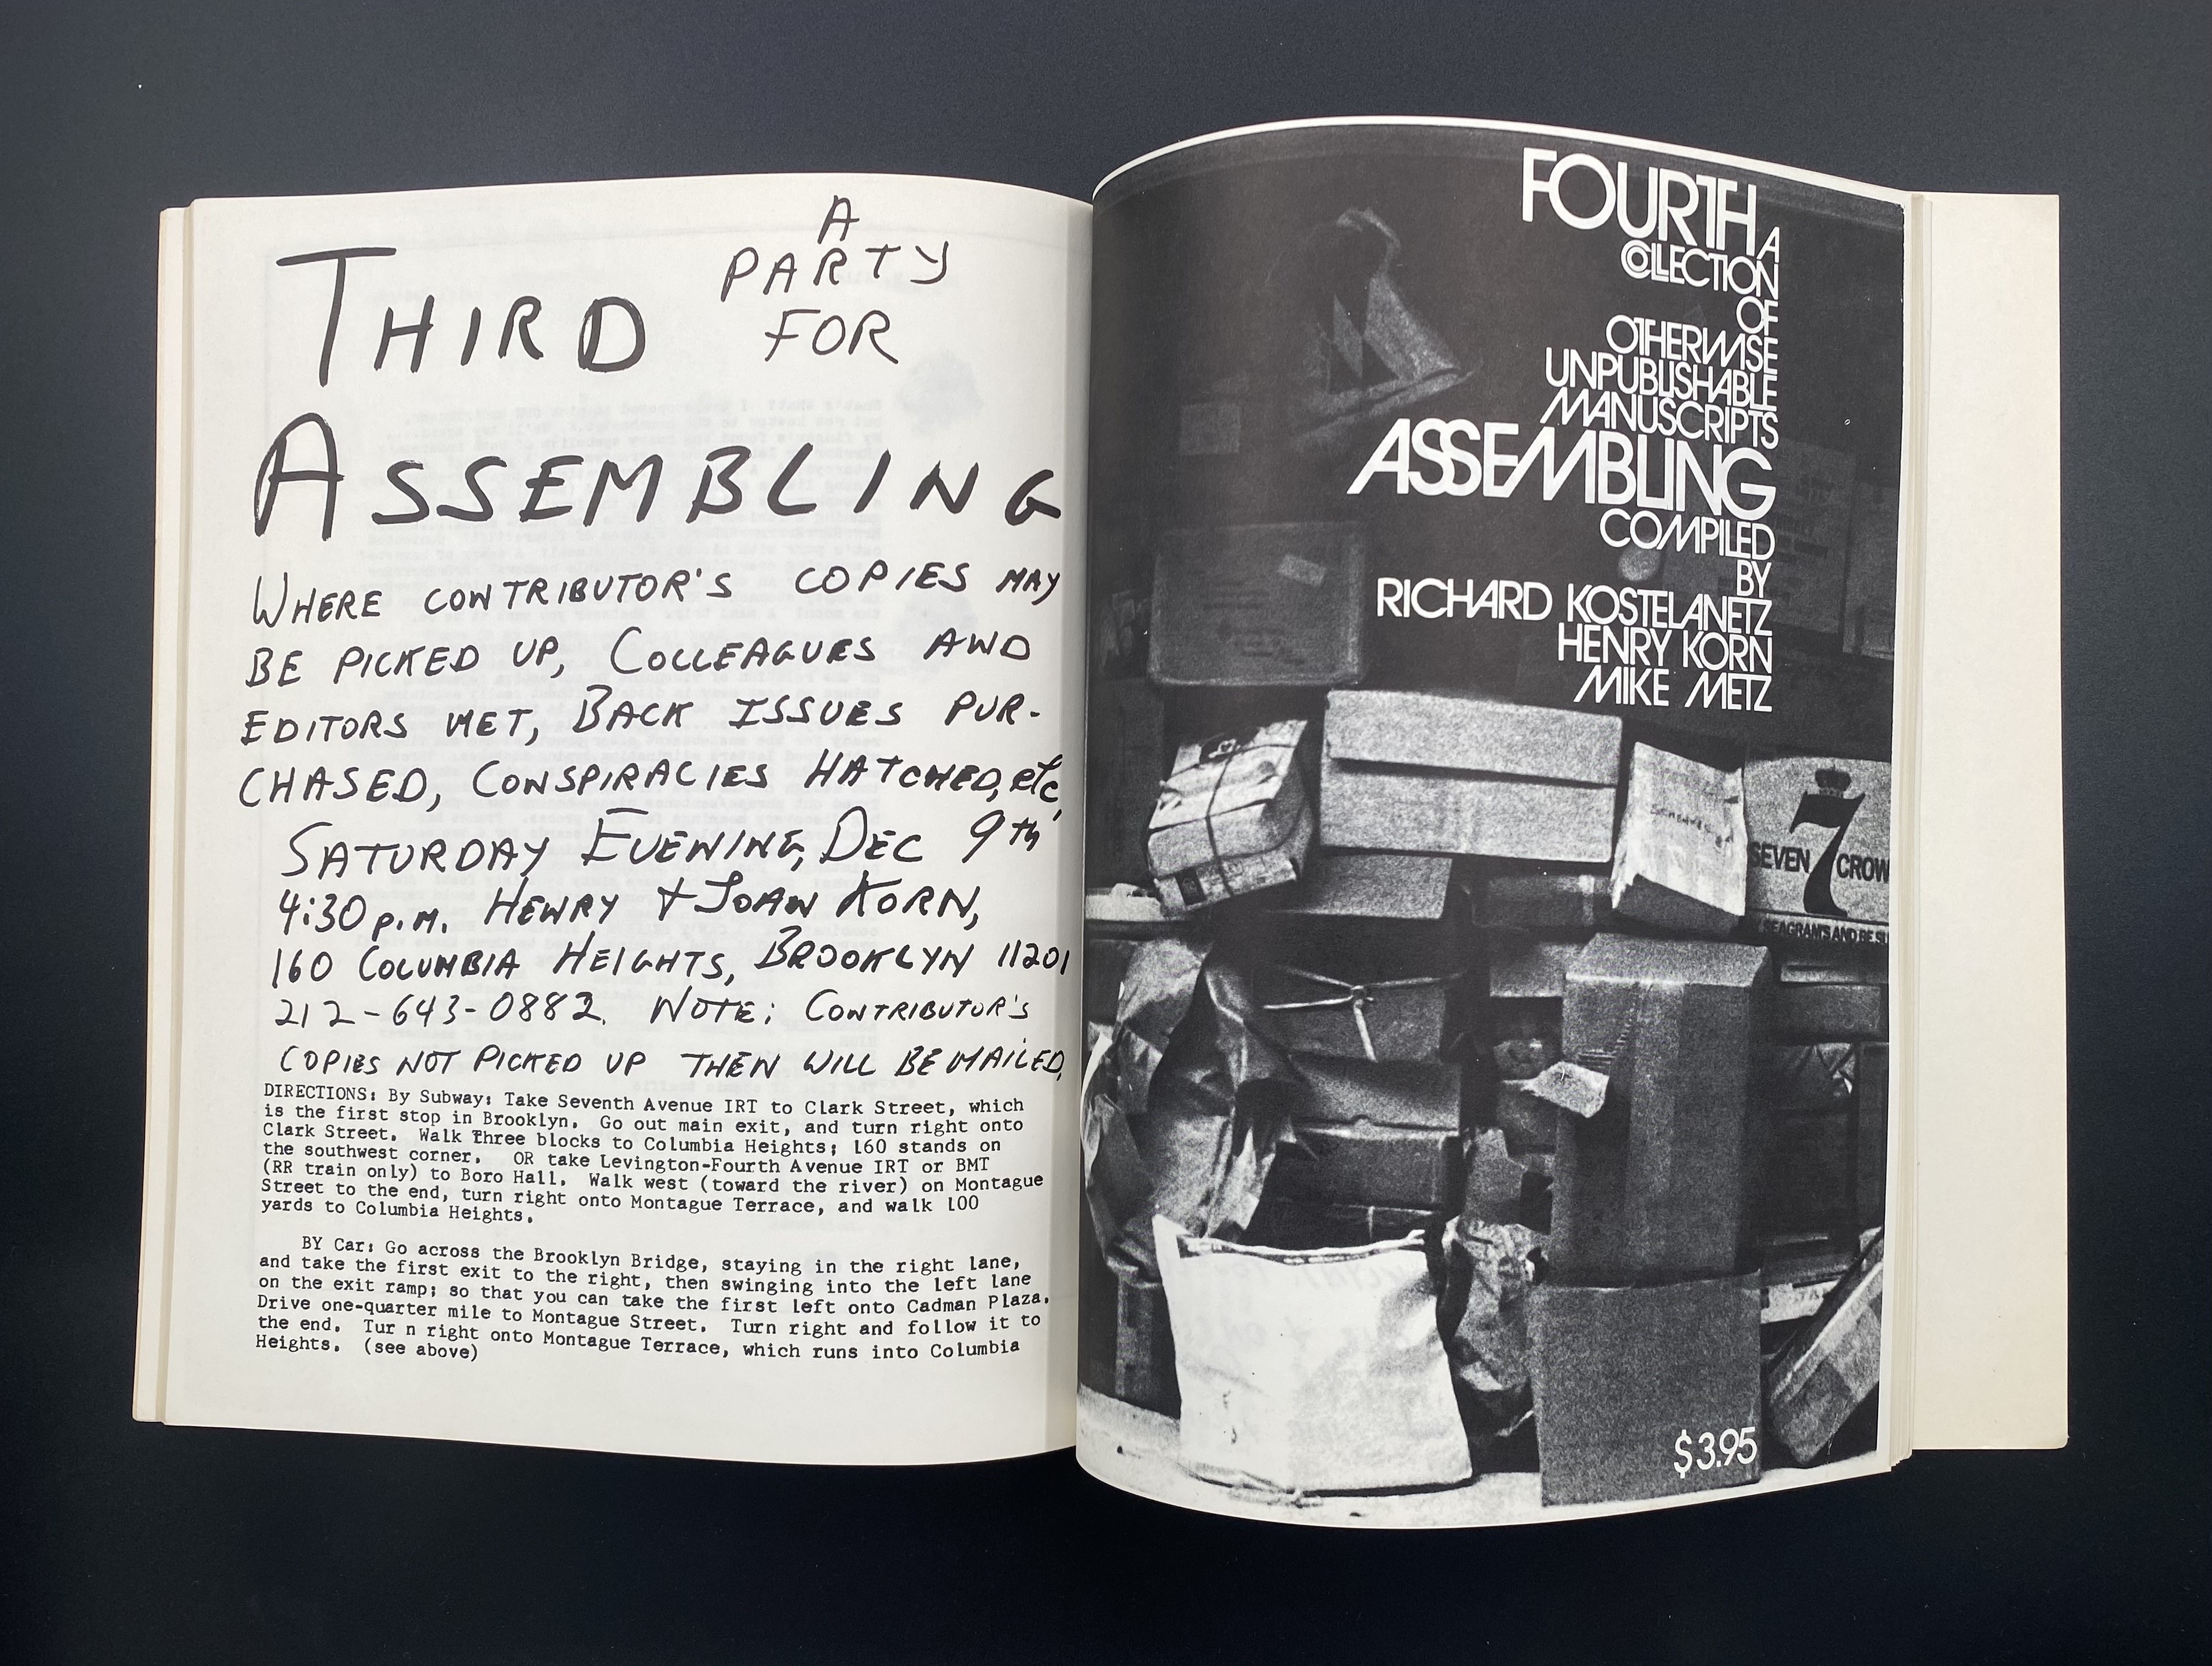 A
PARTY
FOR
THIRD
ASSEMBLING
WHERE CONTRIBUTOR'S COPIES MAY
BE PICKED UP, COLLEAGUES AND
EDITORS MET, BACK ISSUES PUR-
CHASED, CONSPIRACIES HATCHED, etc.
SATURDAY EVENING, DEC 9th
4:30 p.m. HENRY + JOAN KORN,
160 COLUMBIA HEIGHTS, BROOKLYN 11201
212-643-0882. NOTE: CONTRIBUTOR'S
COPIES NOT PICKED UP THEN WILL BE MAILED.
DIRECTIONS: By Subway: Take Seventh Avenue IRT to Clark Street, which
is the first stop in Brooklyn. Go out main exit, and turn right onto
Clark Street. Walk Three blocks to Columbia Heights; 160 stands on
the southwest corner. OR take Levington-Fourth Avenue IRT or BMT
(RR train only) to Boro Hall. Walk west (toward the river) on Montague
Street to the end, turn right onto Montague Terrace, and walk 100
yards to Columbia Heights.
BY Car: Go across the Brooklyn Bridge, staying in the right lane,
and take the first exit to the right, then swinging into the left lane
on the exit ramp; so that you can take the first left onto Cadman Plaza.
Drive one-quarter mile to Montague Street. Turn right and follow it to
the end. Tur n right onto Montague Terrace, which runs into Columbia
Heights. (see above)
FOURTH A
COLLECTION
OF
OTHERWISE
UNPUBLISHABLE
MANUSCRIPTS
ASSEMBLING
COMPILED
BY
RICHARD KOSTELANETZ
HENRY KORN
MIKE METZ
7
SEVEN CROW
SEAGRAM'S AND BE SU
$3.95